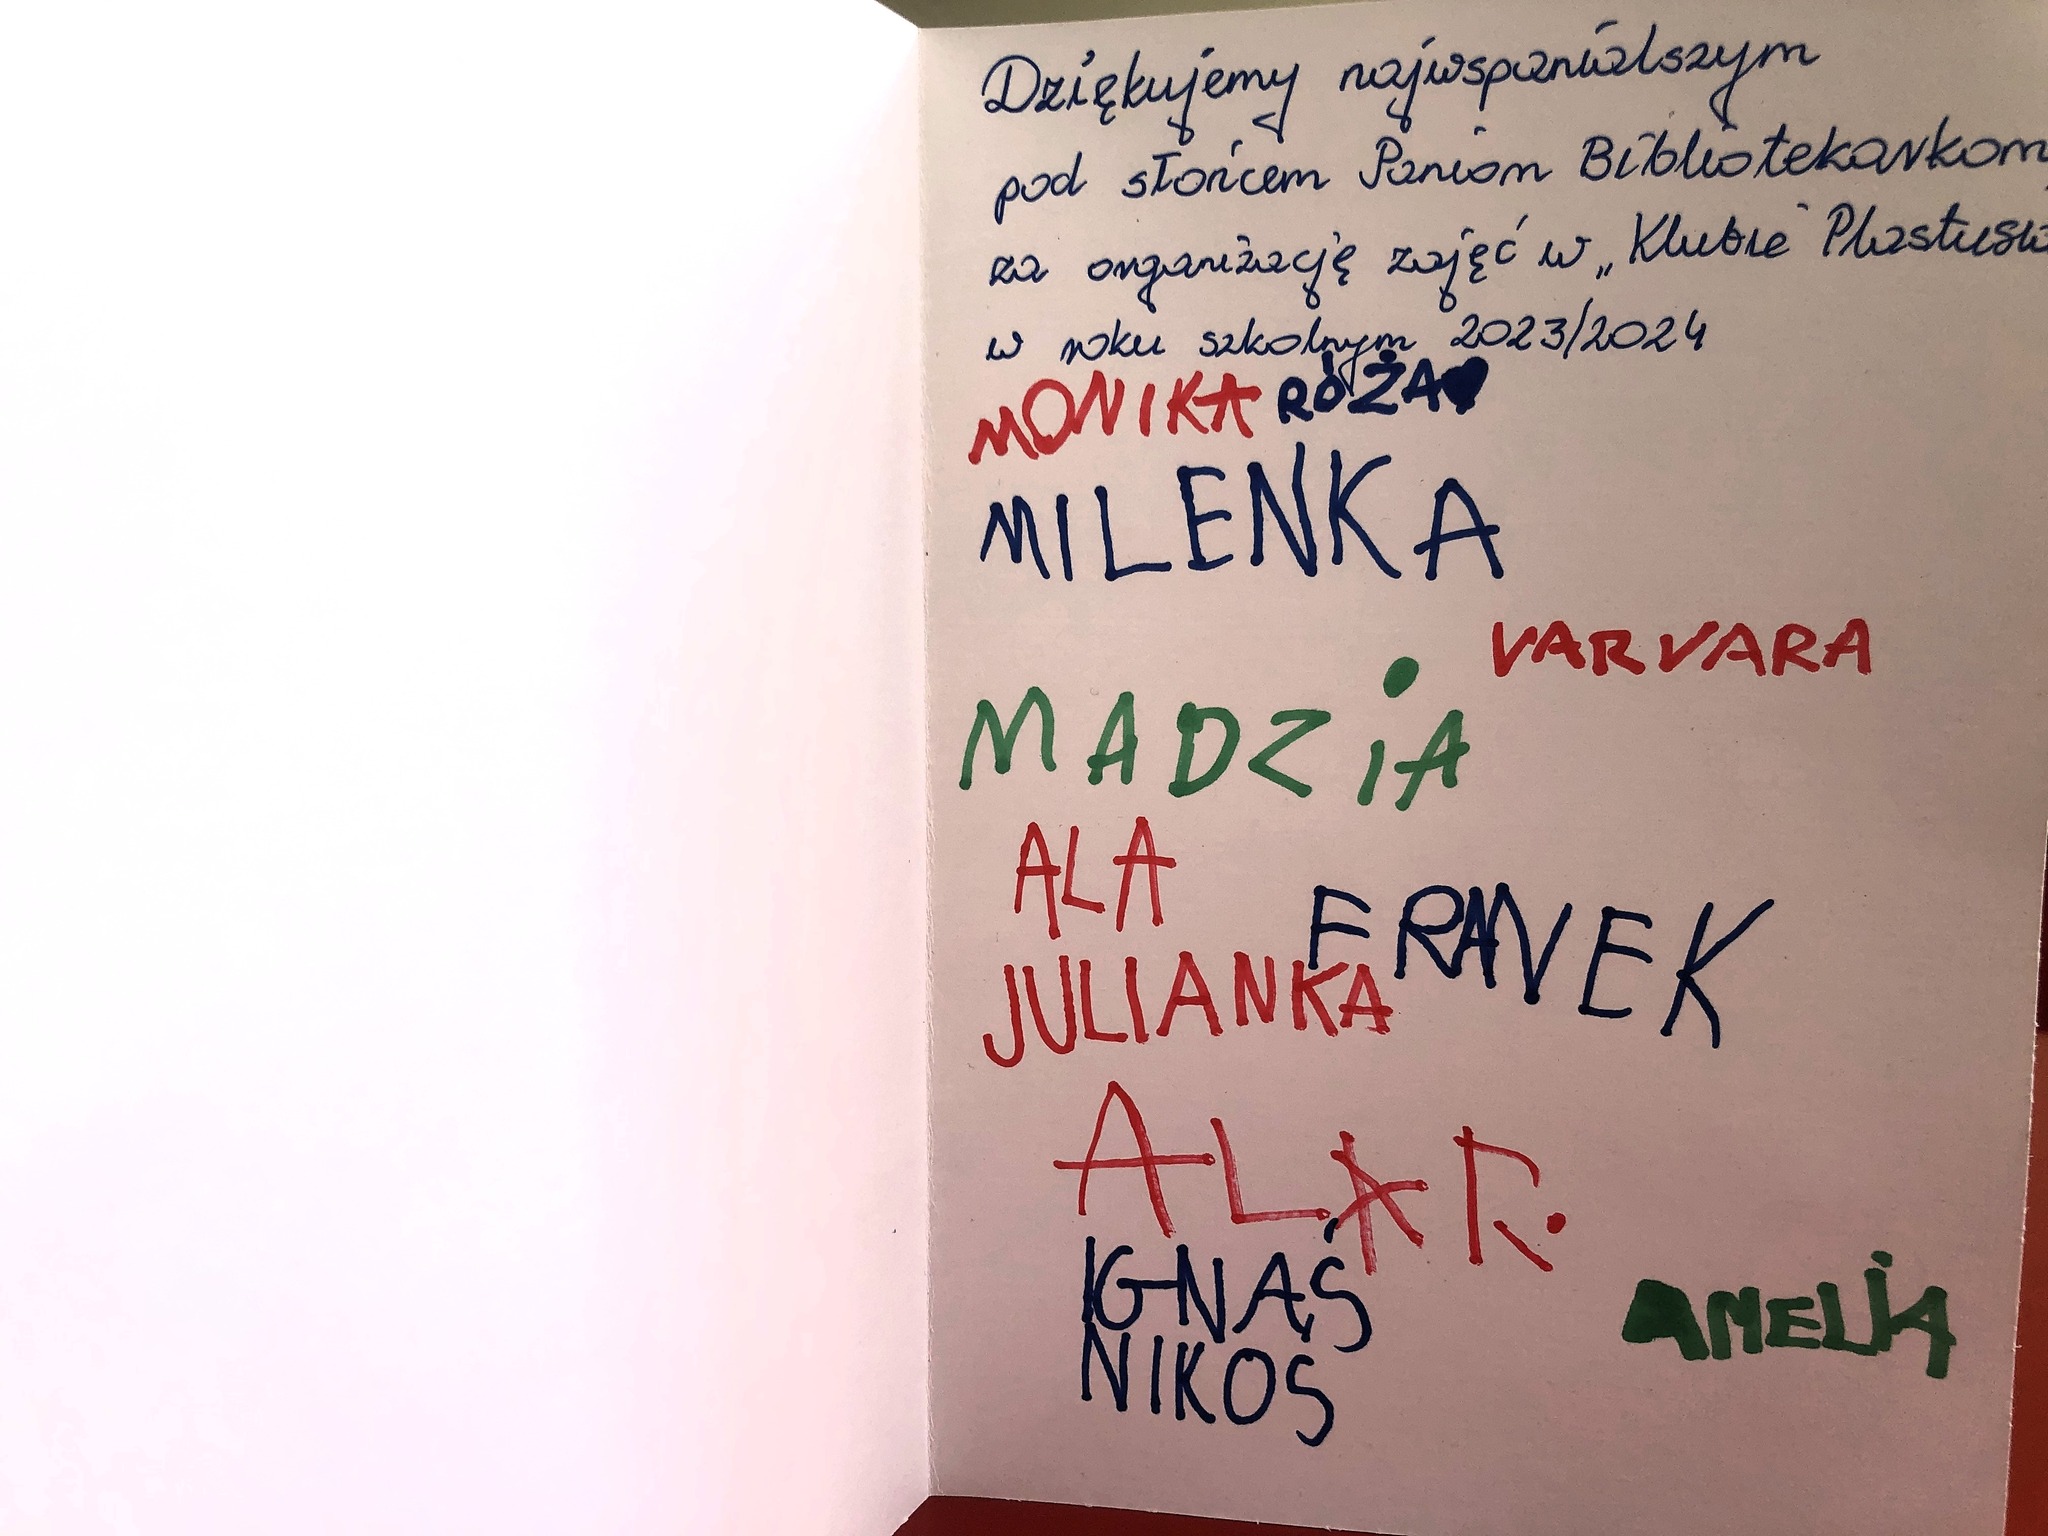 Dziękujemy najwspanialszym
pod słońcem Paniom Bibliotekarkom,
za organizację zajęć w „Klubie Plastusia
w roku szkolnym 2023/2024
MONIKA RÓŻA
MILENKA
VARVARA
MADZiA
ALA
FRANEK
JULIANKA
ALA R.
IGNAŚ
AMELiA
NIKOS